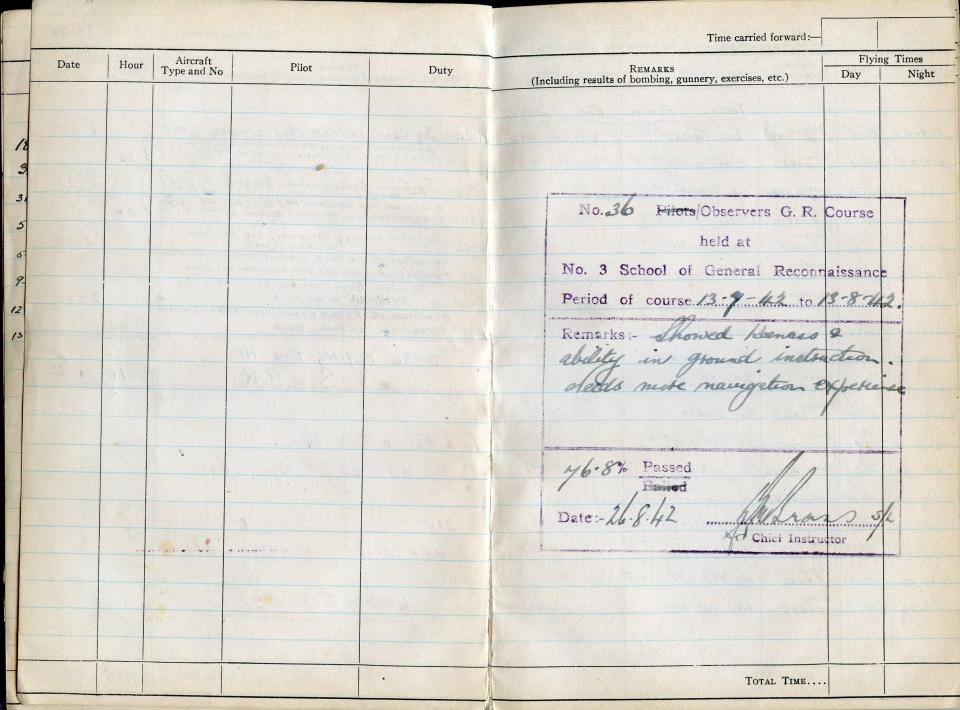 Time carried forward:—
Date Hour Aircraft Type and No Pilot Duty REMARKS (Including results of bombing, gunnery, exercises, etc.) Flying Times Day Night
18
3
31
5
6
9
12
13
No. 36 Pilots/Observers G. R. Course
held at
No. 3 School of General Reconnaissance
Period of course 13-7-42 to 13-8-42.
Remarks:- Showed Keeness &
ability in ground instruction.
Needs more navigation experience
76.8% Passed
Failed
Date:- 26.8.42 S/L
Chief Instructor
TOTAL TIME....